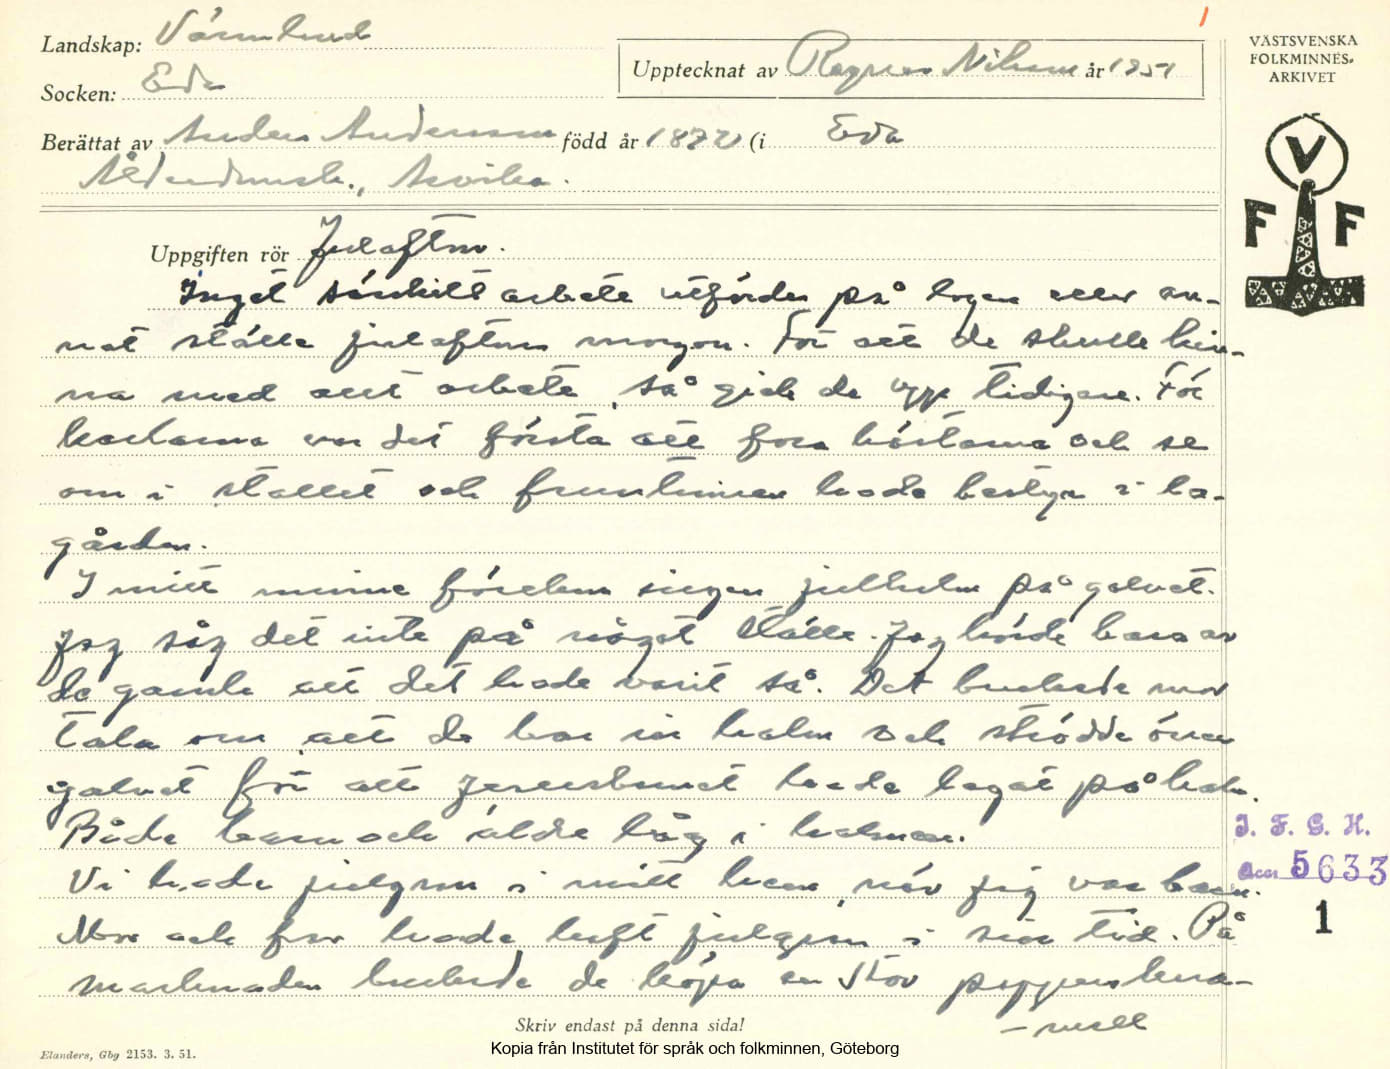 1
Landskap: Värmland
Socken: Eda
Upptecknat av Ragnar Nilsson år 1951
VÄSTSVENSKA
FOLKMINNES-
ARKIVET
Berättat av Anders Andersson född år 1872 (i Eda
Ålderdomsh., Arvika.
V
F F
Uppgiften rör Julafton.
Inget särskilt arbete utfördes på logen eller an-
nat ställe julaftons morgon. För att de skulle hin-
na med allt arbete, så gick de upp tidigare. För
karlarna var det första att fora hästarna och se
om i stallet och fruntimren hade bestyr i la-
gården.
I mitt minne förekom ingen julhalm på golvet.
Jag såg det inte på något ställe. Jag hörde bara av
de gamla att det hade varit så. Det brukade mor
tala om att de bar in halm och strödde över
golvet för att Jesusbarnet hade legat på halm.
Både barn och äldre låg i halmen.
Vi hade julgran i mitt hem, när jag var barn.
Mor och far hade haft julgran i sin tid. På
marknaden brukade de köpa en stor pepparskara-
- mell
J. F. G. H.
acc 5633
1
Skriv endast på denna sida!
Elanders, Gbg 2153. 3. 51.
Kopia från Institutet för språk och folkminnen, Göteborg